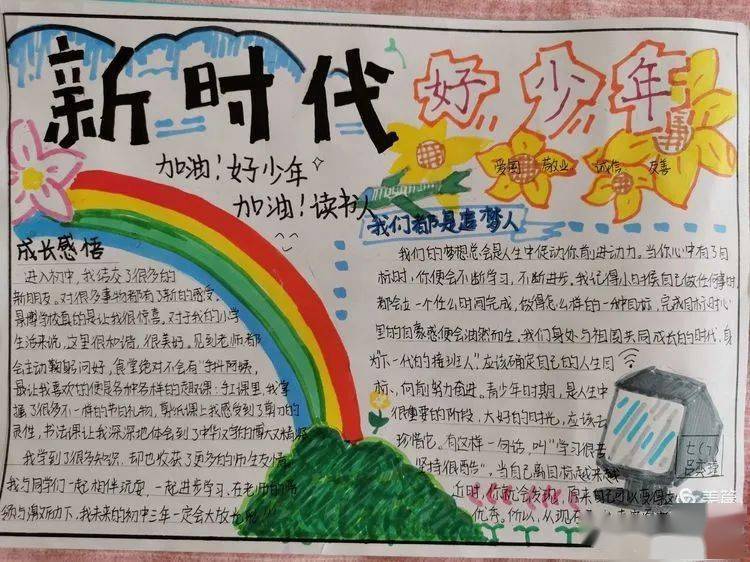 新时代 好少年
加油！好少年
加油！读书人
爱国 敬业 诚信 友善
我们都是追梦人
成长感悟
进入初中，我结交了很多的
新朋友。对很多事物都有了新的感受。
学校真的是让我很惊喜。对于我的小学
生活来说，这里很和谐，很美好，见到老师都
会主动鞠躬问好，食堂绝对不会有
最让我喜欢的便是各种各样的
握了很多不一样的节日礼物，剪纸课上我感受到了剪刀的
灵性，书法课让我深深地体会到了中华汉字的博大
我学到了很多知识，却也收获了更多的师生友情
我与同学们一起相伴玩耍，一起进步学习，在老师的
与激励下，我未来的初中三年一定会大放
我们的梦想总会是人生中促动你前进动力。当你心中有了目
标时，你便会不断学习，不断进步。我记得小时候自己做任何事时
都会立一个什么时间完成，做得怎么样的一种目标，完成目标时心
里的自豪感便会油然而生。我们身处与祖国共同成长的时代，身
为“下一代的接班人”应该确定自己的人生目
标，向前努力奋进。青少年时期，是人生中
很重要的阶段，大好的时光，应该去
珍惜它。有这样一句话，叫“学习很苦，
坚持很酷”，当自己离目标越来越
近时，你就会发现，原来自己可以变得
优秀。所以，从现在
七（7）
美篇